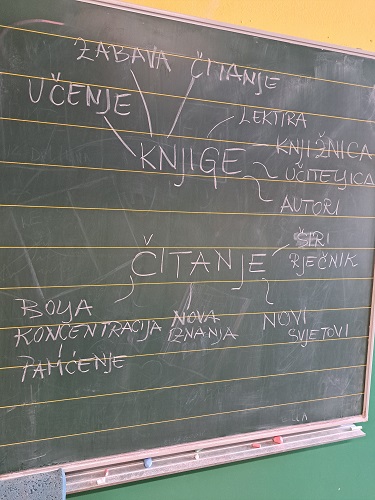 ZABAVA ČITANJE
UČENJE
LEKTIRA
KNJIGE KNJIŽNICA
UČITELJICA
AUTORI
ČITANJE ŠIRI
RJEČNIK
BOLJA
KONCENTRACIJA
I
PAMĆENJE
NOVA
ZNANJA
NOVI
SVJETOVI